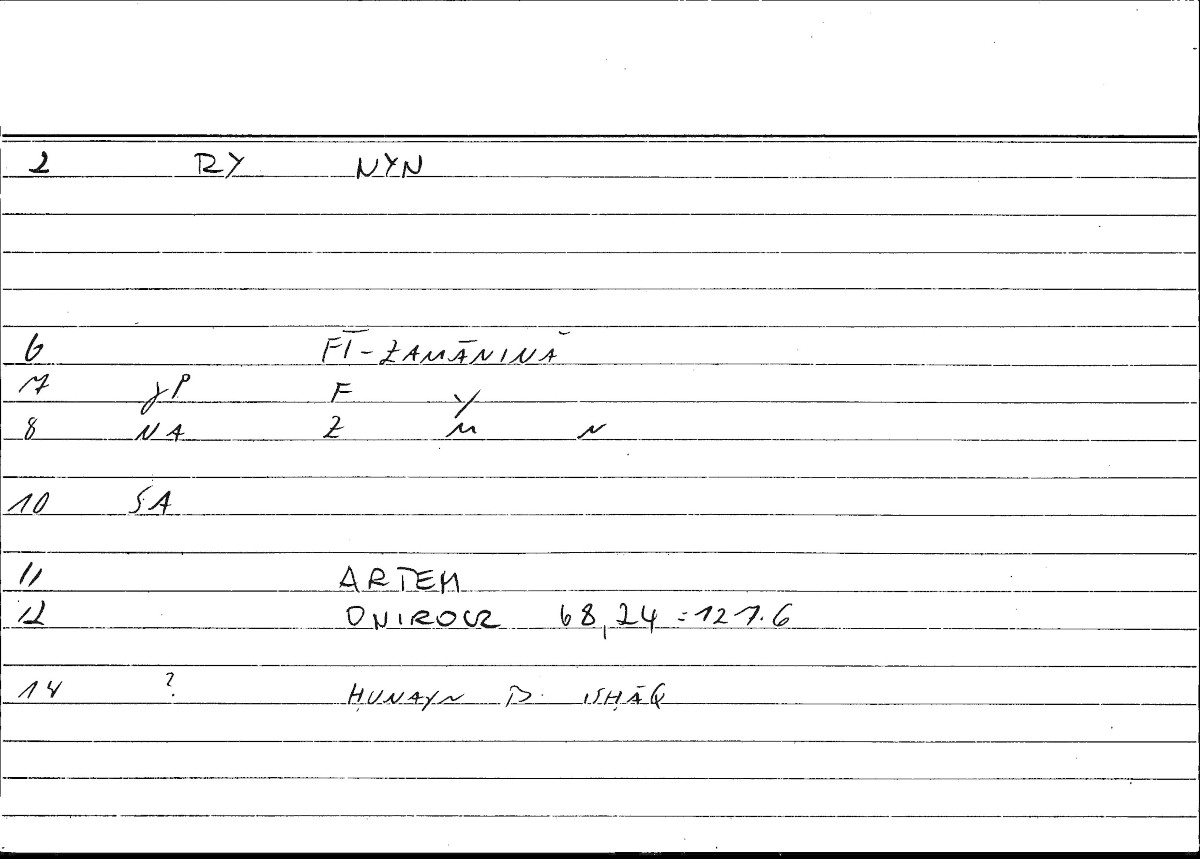 2 RY NYN
6 FĪ-ZAMĀNINĀ
7 JP F Y
8 NA Z M N
10 SA
11 ARTEM
12 ONIROCR 68,24 = 127.6
14 ? ḤUNAYN B. ISḤĀQ